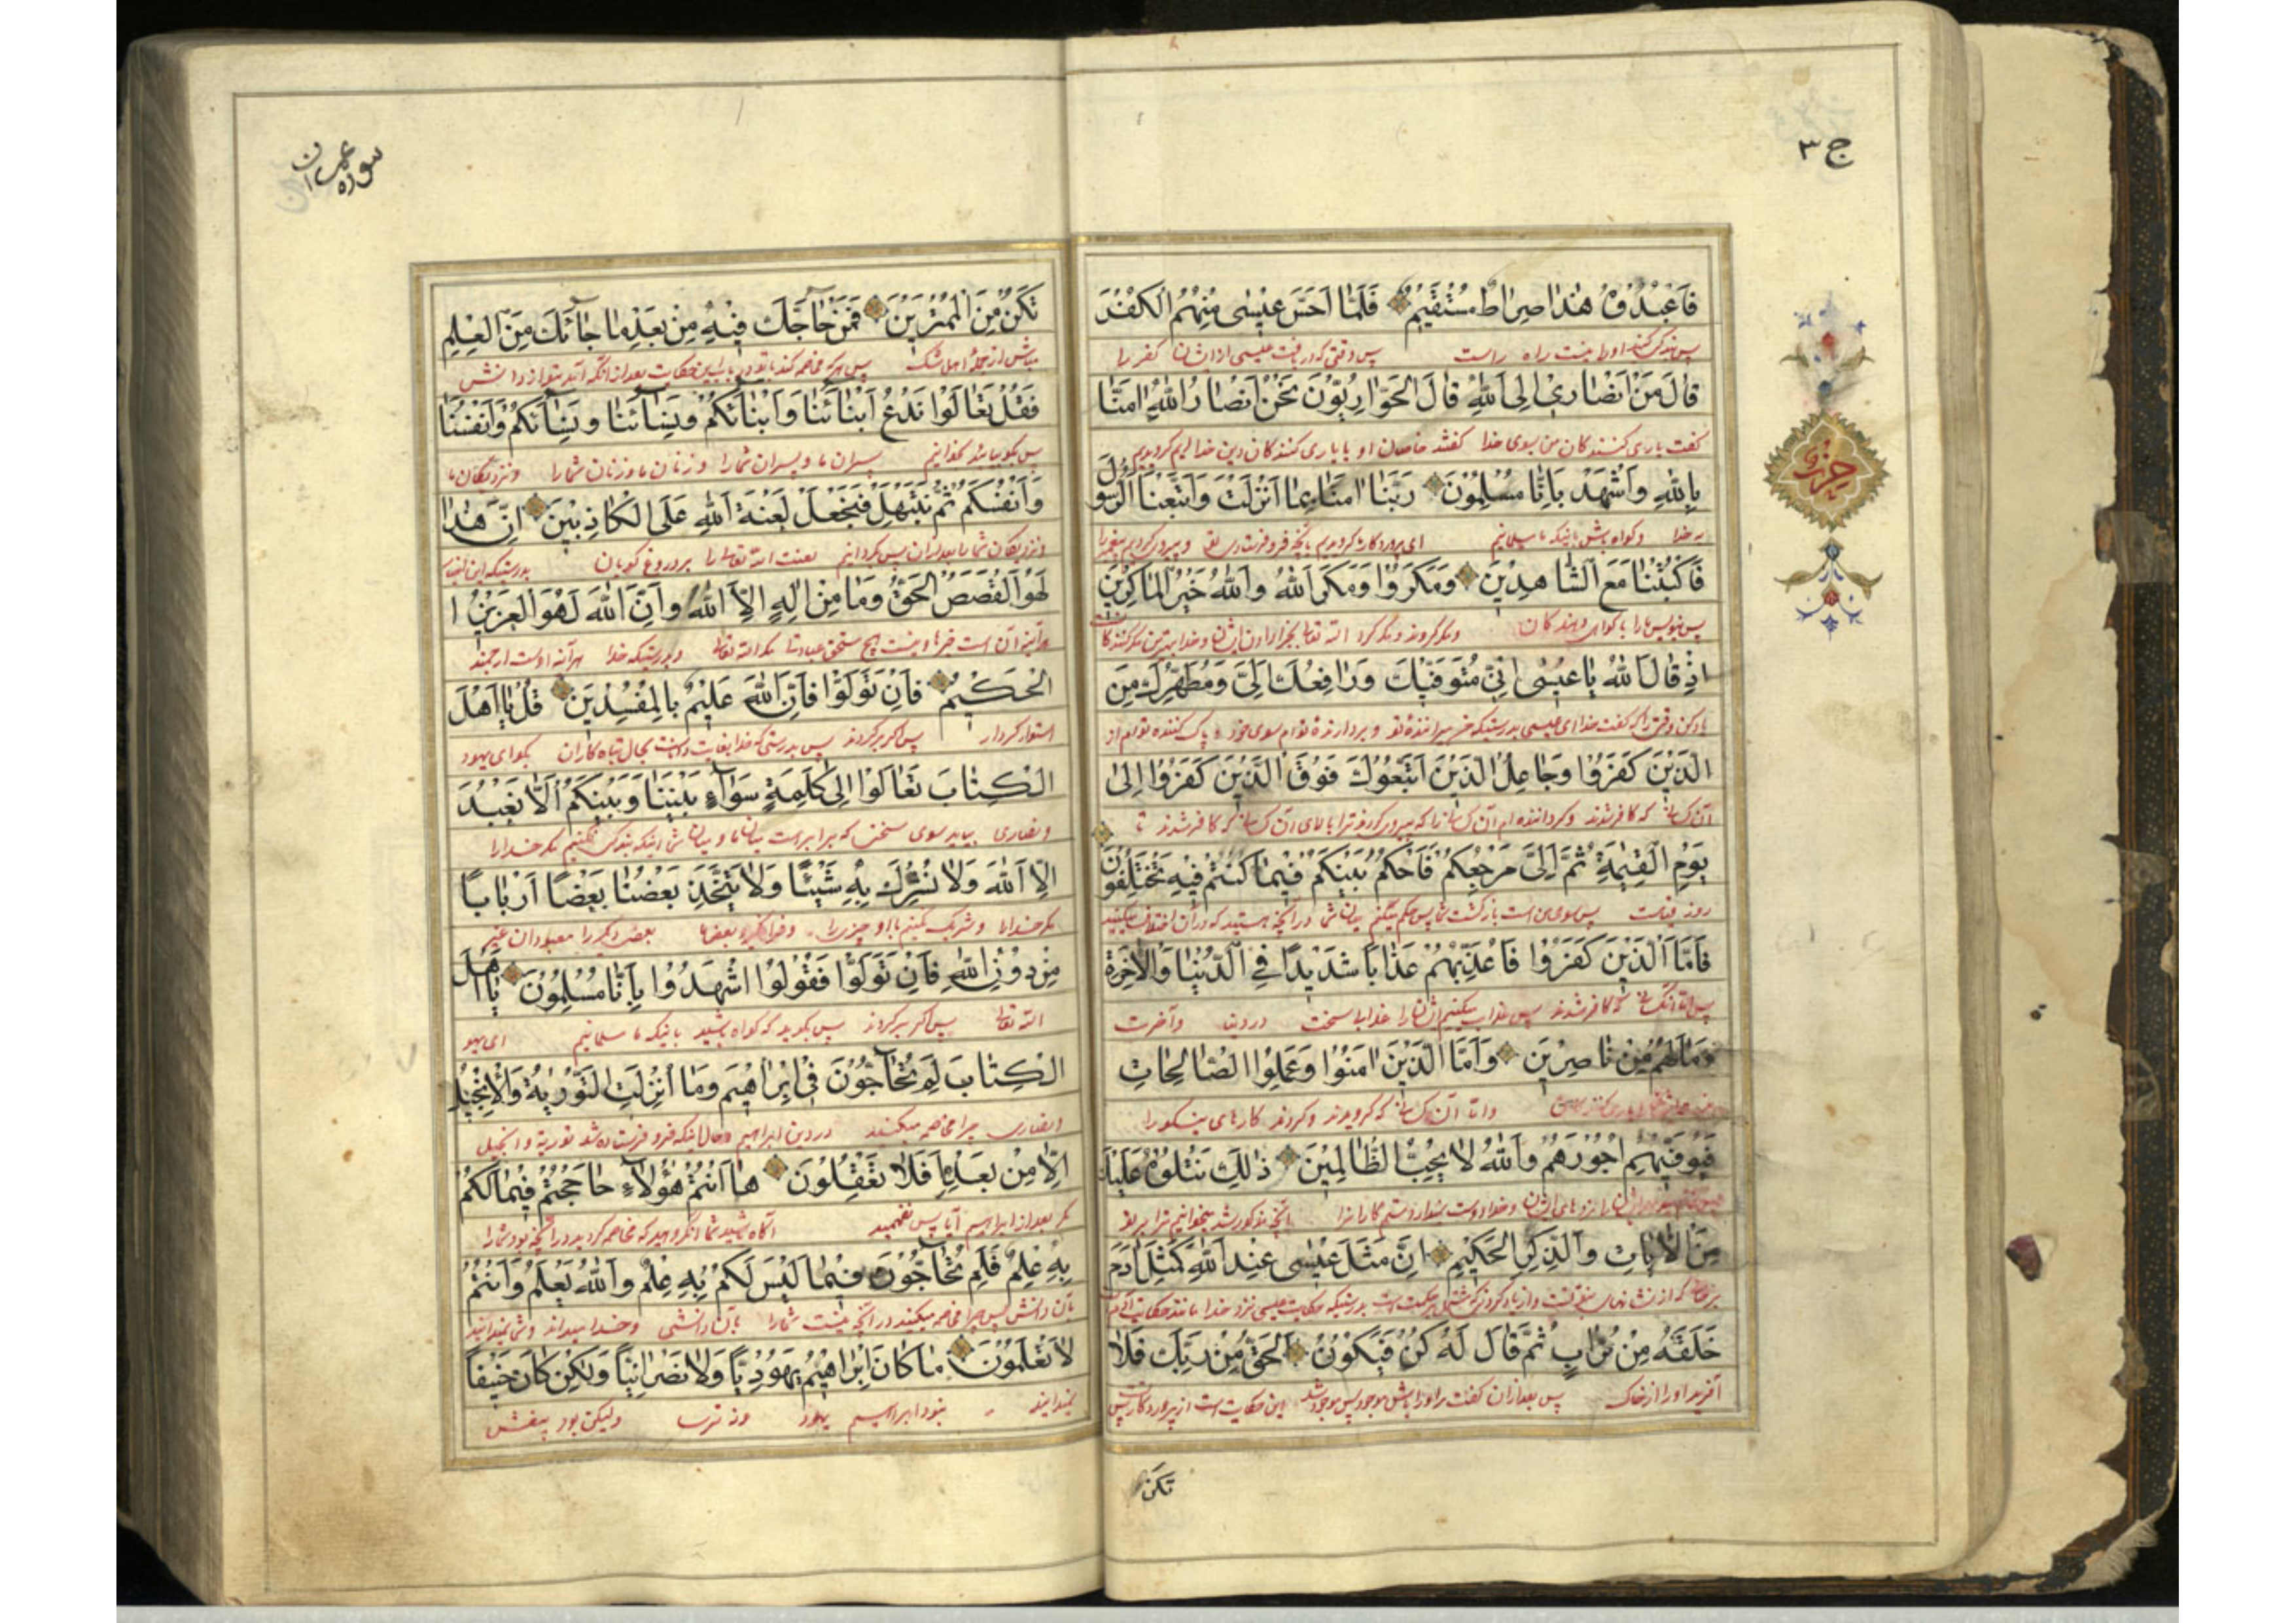 ج ٣
فَاعْبُدُوهُ هٰذَا صِرَاطٌ مُسْتَقِيمٌ فَلَمَّا اَحَسَّ عِيسٰى مِنْهُمُ الْكُفْرَ
پس بندگی کنید او را اینست راه راست پس وقتی که دریافت عیسی از ایشان کفر را
قَالَ مَنْ اَنْصَارِي اِلَى اللّٰهِ قَالَ الْحَوَارِيُّونَ نَحْنُ اَنْصَارُ اللّٰهِ اٰمَنَّا
گفت یاری کنندکان من بسوی خدا گفتند خاصان او یا یاری کنندکان دین خدا ایم کرویدیم
بِاللّٰهِ وَاشْهَدْ بِاَنَّا مُسْلِمُونَ رَبَّنَا اٰمَنَّا بِمَا اَنْزَلْتَ وَاتَّبَعْنَا الرَّسُولَ
بخدا و کواه باش باینکه ما مسلمانیم ای پروردکار ما کرویدیم بانچه فرو فرستادی تو و پیروی کردیم پیغمبر را
فَاكْتُبْنَا مَعَ الشَّاهِدِينَ وَمَكَرُوا وَمَكَرَ اللّٰهُ وَاللّٰهُ خَيْرُ الْمَاكِرِينَ
پس بنویس ما را با کواهی دهندکان و مکر کردند و مکر کرد الله تعالی بجزا دادن ایشان و خدا بهترین مکر کنندکانست
اِذْ قَالَ اللّٰهُ يَا عِيسٰى اِنِّي مُتَوَفِّيكَ وَرَافِعُكَ اِلَيَّ وَمُطَهِّرُكَ مِنَ
یاد کن وقتی را که گفت خدا ای عیسی بدرستیکه و بردارندهٔ توام بسوی خود و پاک کننده توام از
الَّذِينَ كَفَرُوا وَجَاعِلُ الَّذِينَ اتَّبَعُوكَ فَوْقَ الَّذِينَ كَفَرُوا اِلٰى
آن کسانی که کافر شدند و کرداننده ام آن کسانی را که پیروی کردند ترا بالای آن کسانی که کافر شدند تا
يَوْمِ الْقِيٰمَةِ ثُمَّ اِلَيَّ مَرْجِعُكُمْ فَاَحْكُمُ بَيْنَكُمْ فِيمَا كُنْتُمْ فِيهِ تَخْتَلِفُونَ
روز قیامت پس بسوی من است بازکشت شما پس حکم میکنم میان شما در انچه هستید که در آن اختلاف میکنید
فَاَمَّا الَّذِينَ كَفَرُوا فَاُعَذِّبُهُمْ عَذَابًا شَدِيدًا فِي الدُّنْيَا وَالْاٰخِرَةِ
پس اما آنکسانی که کافر شدند پس عذاب میکنیم ایشانرا عذابی سخت در دنیا و آخرت
وَمَا لَهُمْ مِنْ نَاصِرِينَ وَاَمَّا الَّذِينَ اٰمَنُوا وَعَمِلُوا الصَّالِحَاتِ
و اما آن کسانی که کرویدند و کردند کارهای نیکو را
فَيُوَفِّيهِمْ اُجُورَهُمْ وَاللّٰهُ لَا يُحِبُّ الظَّالِمِينَ ذٰلِكَ نَتْلُوهُ عَلَيْكَ
مزدهای ایشان و خدا دوست نمیدارد ستمکارانرا آنچه مذکور شد میخوانیم ترا بر تو
مِنَ الْاٰيَاتِ وَالذِّكْرِ الْحَكِيمِ اِنَّ مَثَلَ عِيسٰى عِنْدَ اللّٰهِ كَمَثَلِ اٰدَمَ
بدرستیکه حکایت عیسی نزد خدا مانند حکایت آدم
خَلَقَهُ مِنْ تُرَابٍ ثُمَّ قَالَ لَهُ كُنْ فَيَكُونُ الْحَقُّ مِنْ رَبِّكَ فَلَا
آفرید او را از خاک پس بعد از ان گفت مر او را باش موجود پس موجود شد این حکایت است از پروردکار تو پس
تكن
حزب
سوره عمران
تَكُنْ مِنَ الْمُمْتَرِينَ فَمَنْ حَاجَّكَ فِيهِ مِنْ بَعْدِ مَا جَائَكَ مِنَ الْعِلْمِ
مباش از جملهٔ اهل شک پس هر که مخاصمه کند با تو در باب این حکایت بعد از انکه آمد بتو از دانش
فَقُلْ تَعَالَوْا نَدْعُ اَبْنَائَنَا وَاَبْنَائَكُمْ وَنِسَائَنَا وَنِسَائَكُمْ وَاَنْفُسَنَا
پس بکو بیایید بخوانیم پسران ما و پسران شما را و زنان ما و زنان شما را و نزدیکان ما
وَاَنْفُسَكُمْ ثُمَّ نَبْتَهِلْ فَنَجْعَلْ لَعْنَةَ اللّٰهِ عَلَى الْكَاذِبِينَ اِنَّ هٰذَا
و نزدیکان شما را بعد از ان پس بکردانیم لعنت الله تعالی را بر دروغ کویان بدرستیکه این
لَهُوَ الْقَصَصُ الْحَقُّ وَمَا مِنْ اِلٰهٍ اِلَّا اللّٰهُ وَاِنَّ اللّٰهَ لَهُوَ الْعَزِيزُ ا
هر آینه آن است و نیست هیچ مستحق عبادت مکر الله تعالی و بدرستیکه خدا هر آینه اوست ارجمند
الْحَكِيمُ فَاِنْ تَوَلَّوْا فَاِنَّ اللّٰهَ عَلِيمٌ بِالْمُفْسِدِينَ قُلْ يَا اَهْلَ
استوار کردار پس اکر برکردند پس بدرستی که خدا بحال تباه کاران بکو ای یهود
الْكِتَابِ تَعَالَوْا اِلٰى كَلِمَةٍ سَوَآءٍ بَيْنَنَا وَبَيْنَكُمْ اَلَّا نَعْبُدَ
و نصاری بیایید سوی سخنی که برابر است میان ما و میان شما اینکه بندکی نکنیم مکر خدا را
اِلَّا اللّٰهَ وَلَا نُشْرِكَ بِهِ شَيْئًا وَلَا يَتَّخِذَ بَعْضُنَا بَعْضًا اَرْبَابًا
مکر خدا را و شریک نکنیم با او چیزی را و فرا نکیرد بعضی ما بعضی دیکر را معبودان غیر
مِنْ دُونِ اللّٰهِ فَاِنْ تَوَلَّوْا فَقُولُوا اشْهَدُوا بِاَنَّا مُسْلِمُونَ يَا اَهْلَ
الله تعالی پس اکر برکردند پس بکویید که کواه باشید باینکه ما مسلمانیم ای یهو
الْكِتَابِ لِمَ تُحَآجُّونَ فِي اِبْرَاهِيمَ وَمَا اُنْزِلَتِ التَّوْرٰيةُ وَالْاِنْجِيلُ
و نصاری چرا مخاصمه میکنید در دین ابراهیم و حال انکه فرو فرستاده نشد توریة و انجیل
اِلَّا مِنْ بَعْدِهِ اَفَلَا تَعْقِلُونَ هَا اَنْتُمْ هٰؤُلَآءِ حَاجَجْتُمْ فِيمَا لَكُمْ
مکر بعد از ابراهیم آیا پس نفهمید آکاه باشید شما آنکروهید که مخاصمه کردید در آنچه بود شما را
بِهِ عِلْمٌ فَلِمَ تُحَآجُّونَ فِيمَا لَيْسَ لَكُمْ بِهِ عِلْمٌ وَاللّٰهُ يَعْلَمُ وَاَنْتُمْ
بآن دانش پس چرا مخاصمه میکنید در آنچه نیست شما را بآن دانشی و خدا میداند و شما نمیدانید
لَا تَعْلَمُونَ مَا كَانَ اِبْرَاهِيمُ يَهُودِيًّا وَلَا نَصْرَانِيًّا وَلٰكِنْ كَانَ حَنِيفًا
نمیدانید نبود ابراهیم یهود و نه ترسا ولیکن بود